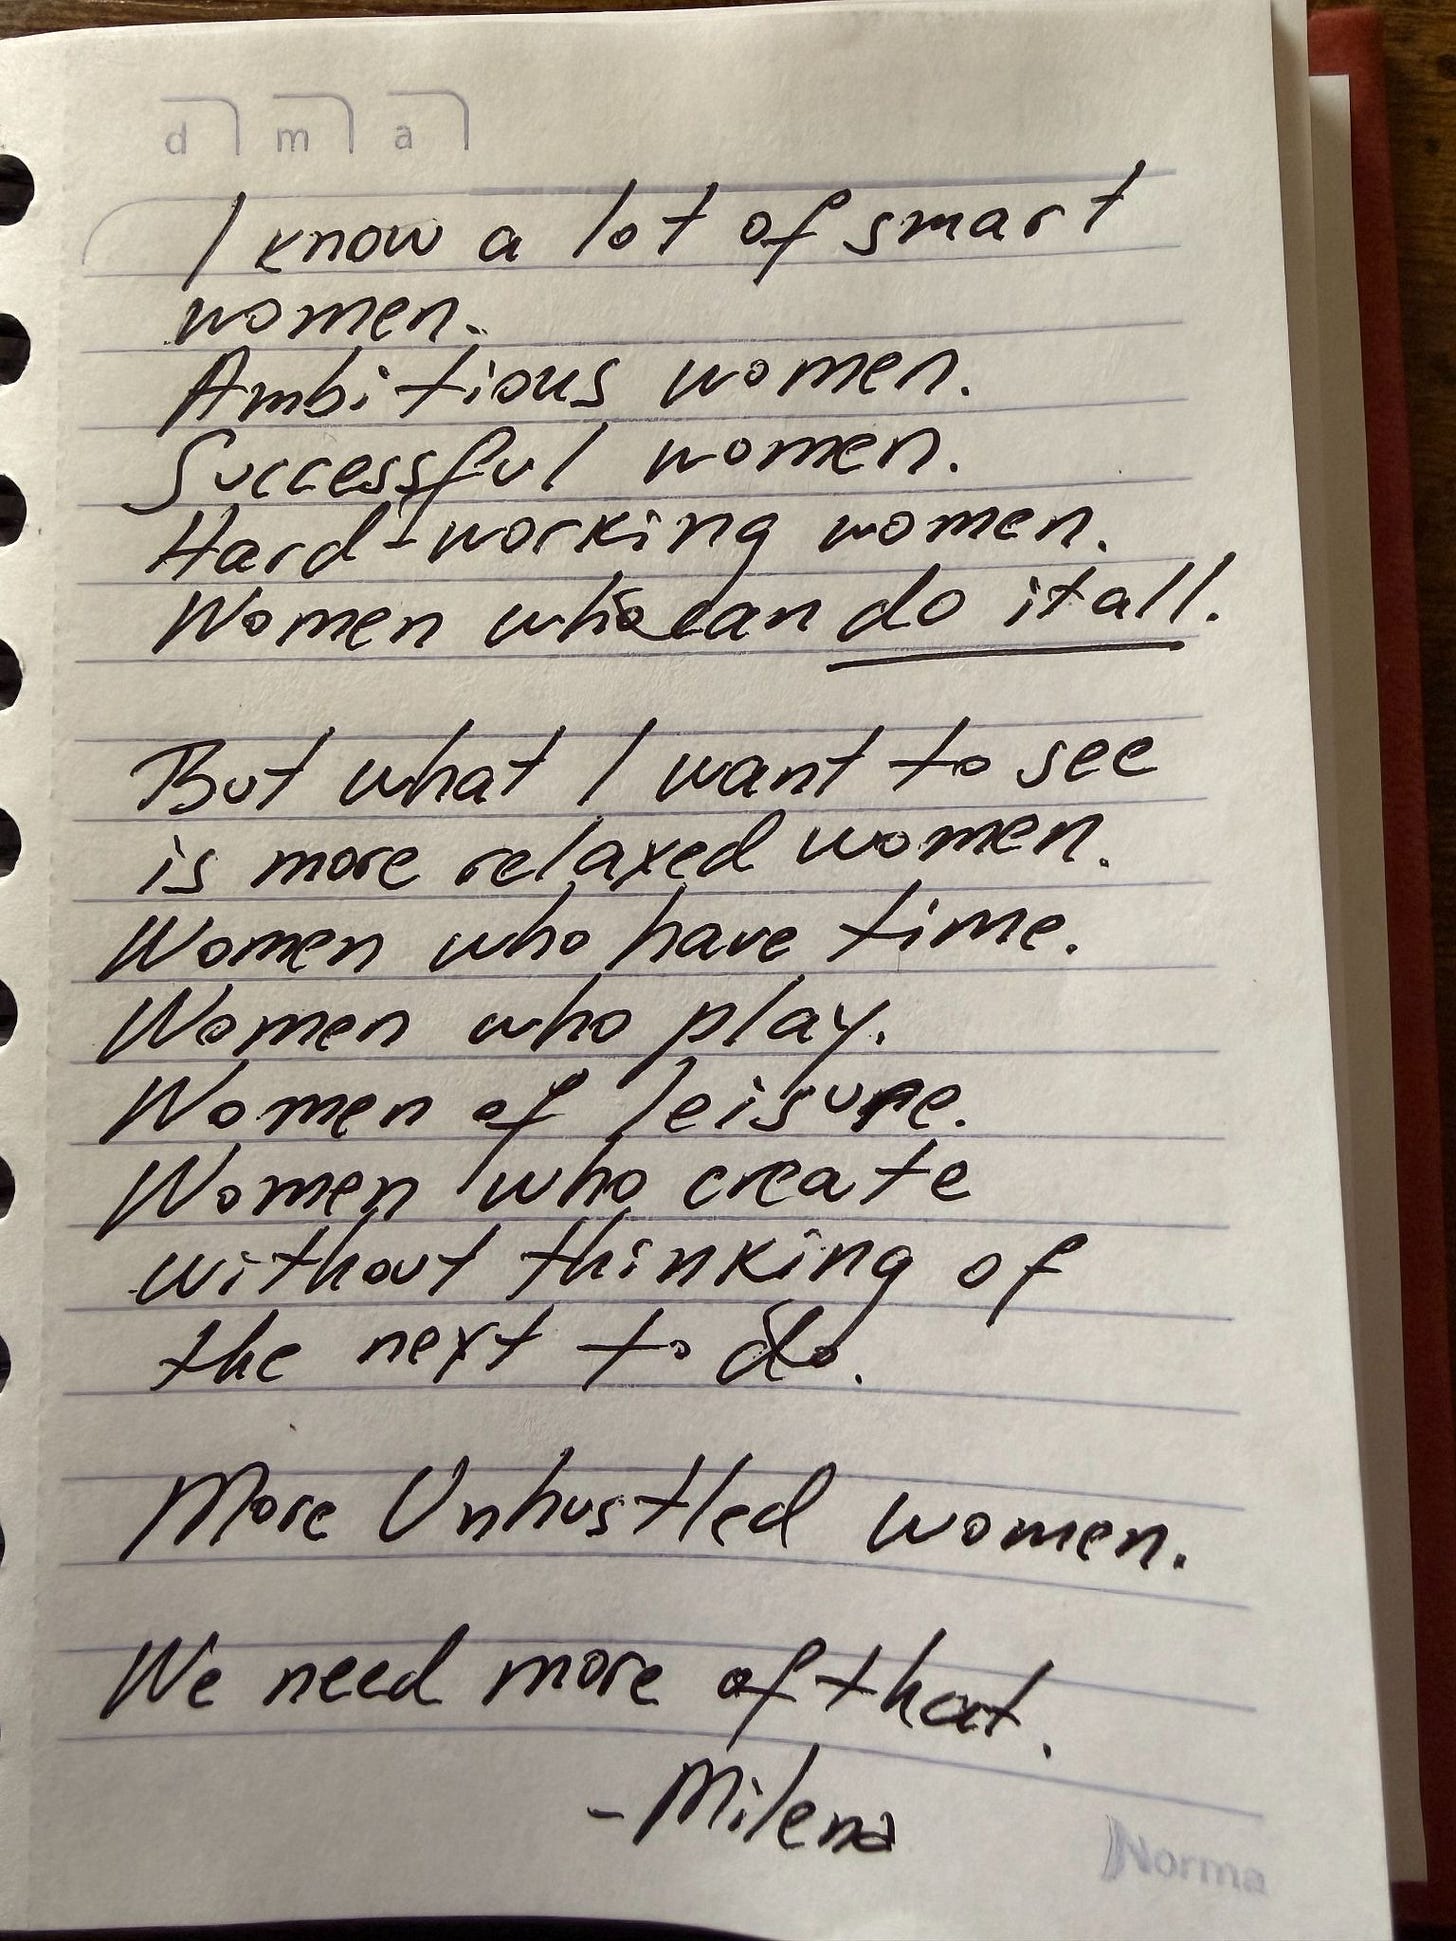 d m a
I know a lot of smart
women.
Ambitious women.
Successful women.
Hard-working women.
Women who can do it all.
But what I want to see
is more relaxed women.
Women who have time.
Women who play.
Women of leisure.
Women who create
without thinking of
the next to do.
More Unhustled women.
We need more of that.
-Milena
Norma